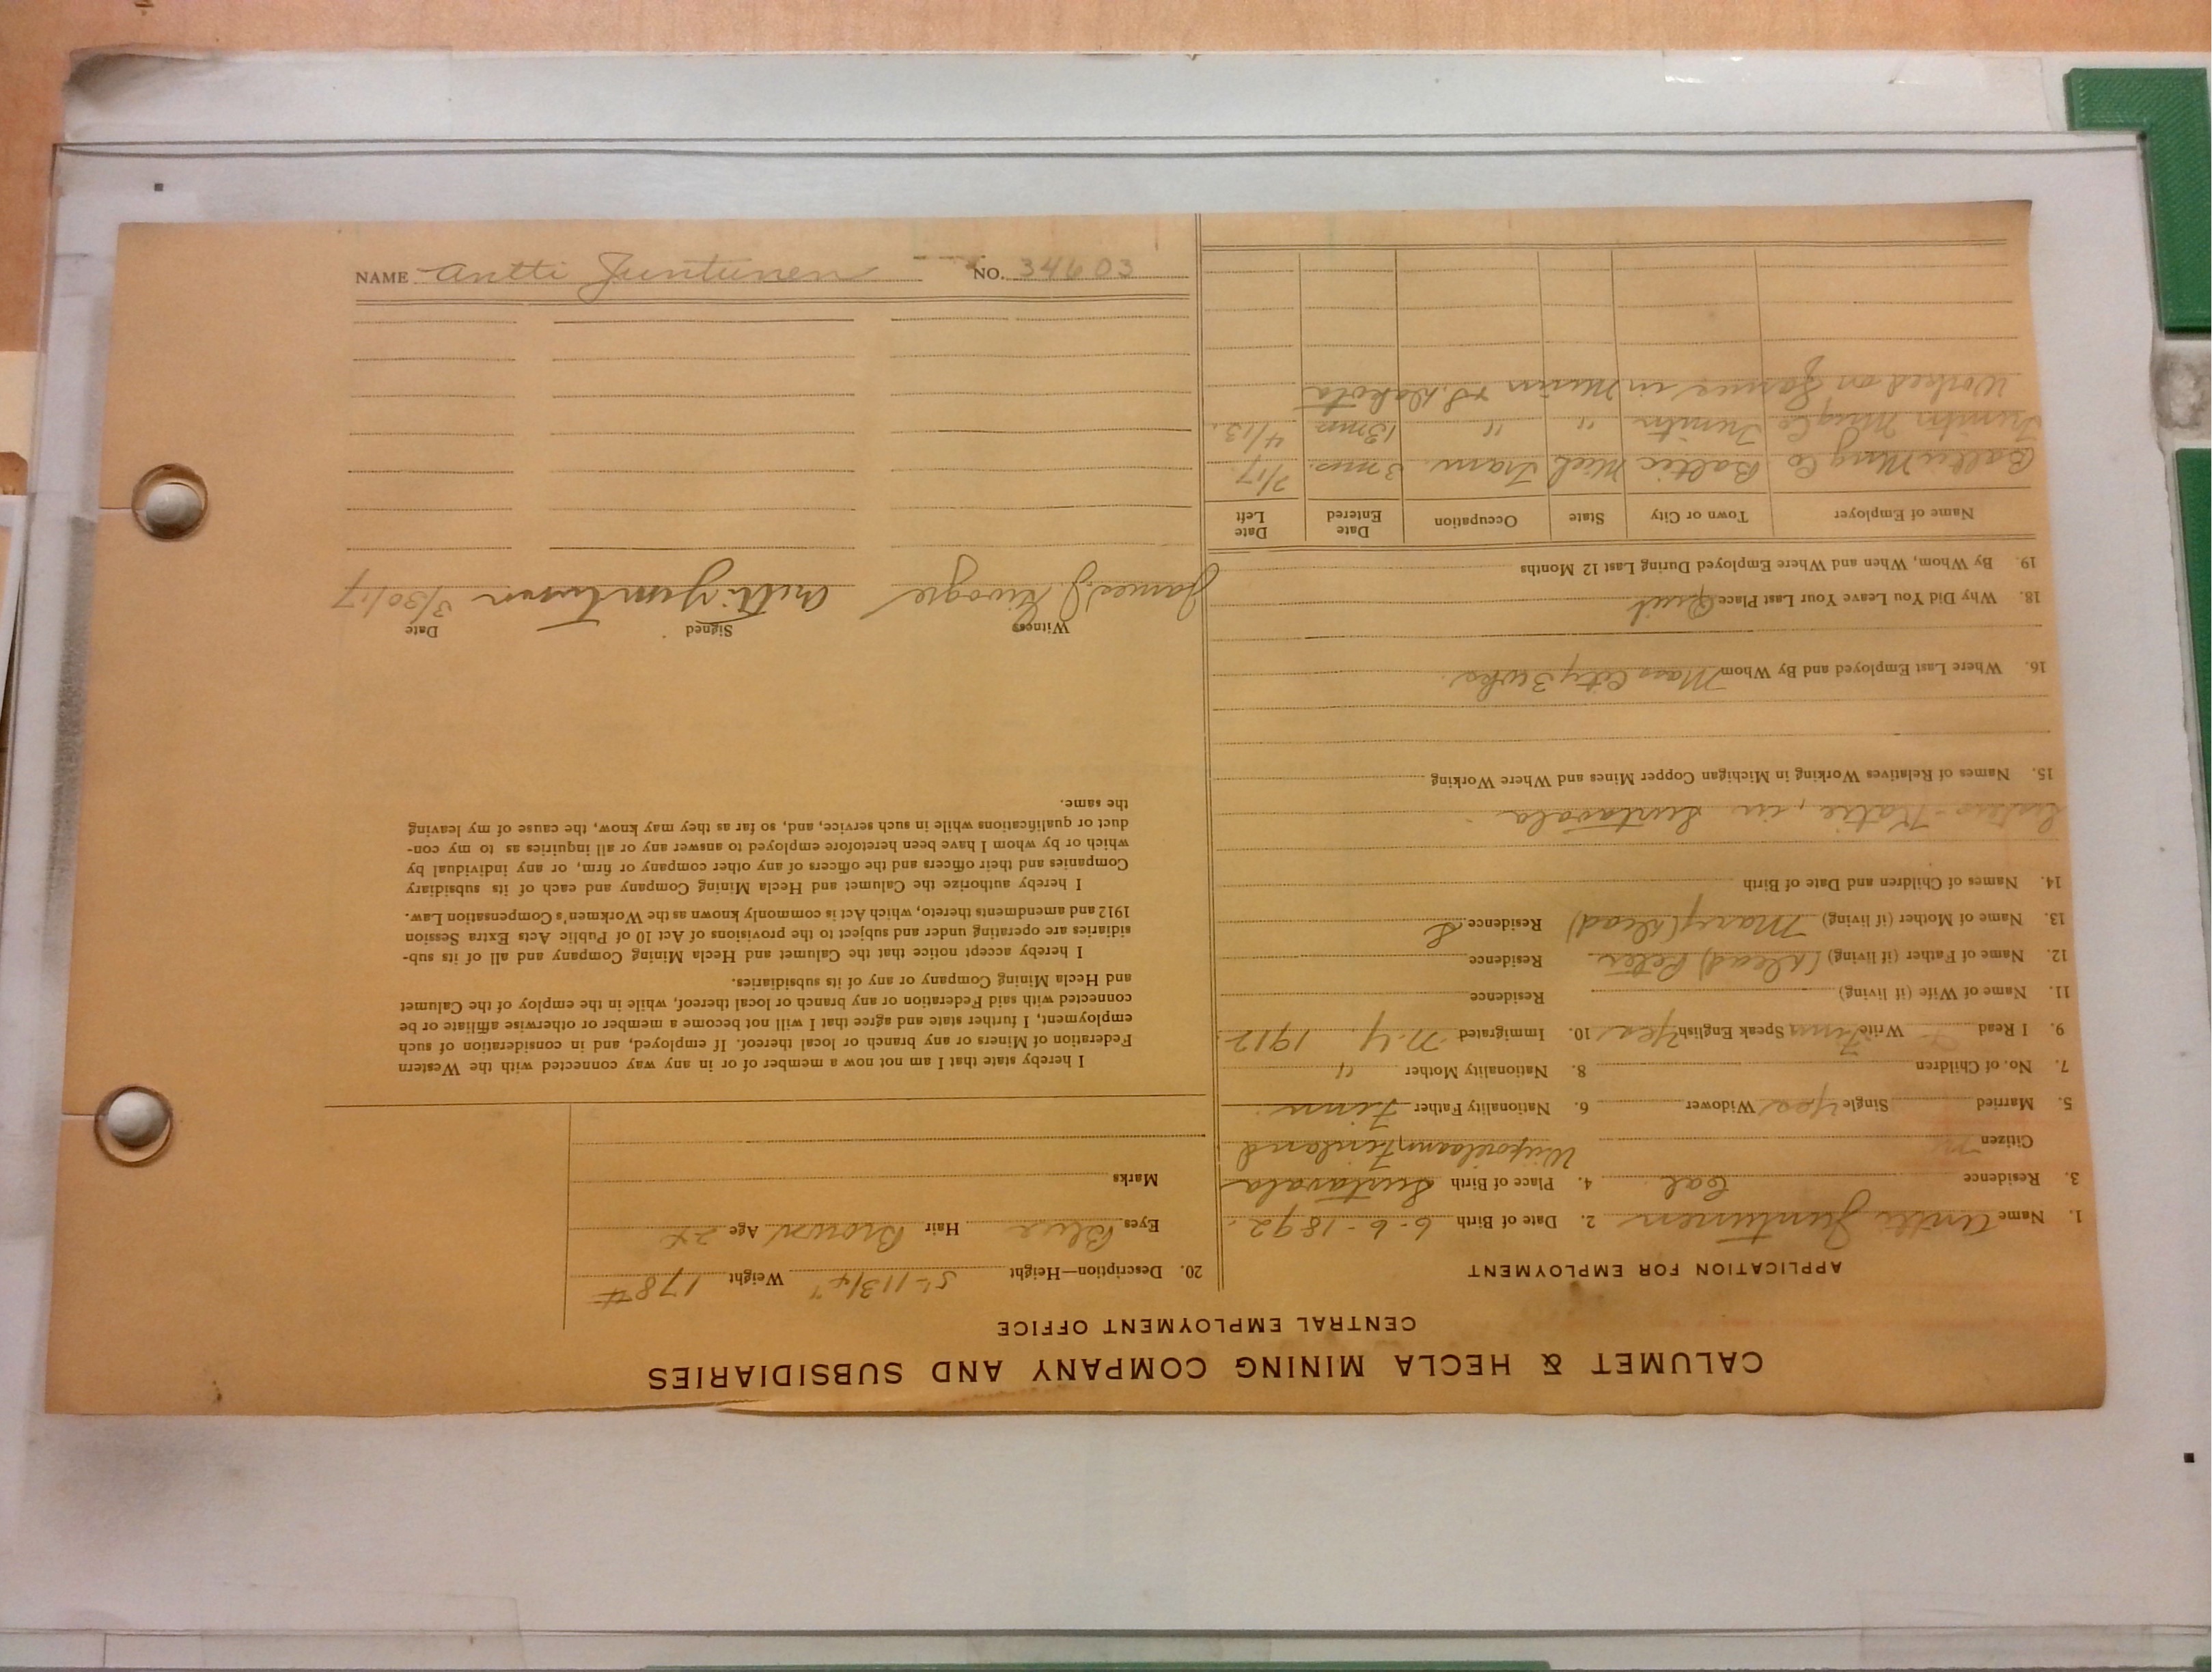 CALUMET & HECLA MINING COMPANY AND SUBSIDIARIES
CENTRAL EMPLOYMENT OFFICE
APPLICATION FOR EMPLOYMENT
1. Name Antti Juntunen 2. Date of Birth 6-6-1892.
3. Residence Cal 4. Place of Birth
Citizen Finland
5. Married Single Yes Widower 6. Nationality Father Finn
7. No. of Children 8. Nationality Mother "
9. I Read Write Finn Speak English Yes 10. Immigrated N.Y. 1912.
11. Name of Wife (if living) Residence
12. Name of Father (if living) (dead) Peter Residence
13. Name of Mother (if living) Mary (dead) Residence
14. Names of Children and Date of Birth
Katie, in
15. Names of Relatives Working in Michigan Copper Mines and Where Working
16. Where Last Employed and By Whom Mass City 3 wks.
18. Why Did You Leave Your Last Place Quit
19. By Whom, When and Where Employed During Last 12 Months
Name of Employer Town or City State Occupation Date Entered Date Left
Baltic Mng Co Baltic Mich Tram 3 mos. 2/17
Mng Co " " 13 mos 4/13.
Worked on farms in Minn & S. Dakota
20. Description—Height 5'-11 3/4" Weight 178#
Eyes Blue Hair Brown Age 24
Marks
I hereby state that I am not now a member of or in any way connected with the Western
Federation of Miners or any branch or local thereof. If employed, and in consideration of such
employment, I further state and agree that I will not become a member or otherwise affiliate or be
connected with said Federation or any branch or local thereof, while in the employ of the Calumet
and Hecla Mining Company or any of its subsidiaries.
I hereby accept notice that the Calumet and Hecla Mining Company and all of its sub-
sidiaries are operating under and subject to the provisions of Act 10 of Public Acts Extra Session
1912 and amendments thereto, which Act is commonly known as the Workmen's Compensation Law.
I hereby authorize the Calumet and Hecla Mining Company and each of its subsidiary
Companies and their officers and the officers of any other company or firm, or any individual by
which or by whom I have been heretofore employed to answer any or all inquiries as to my con-
duct or qualifications while in such service, and, so far as they may know, the cause of my leaving
the same.
Witness Signed Date
James J. Antti Juntunen 3/30/17
NAME Antti Juntunen NO. 34603